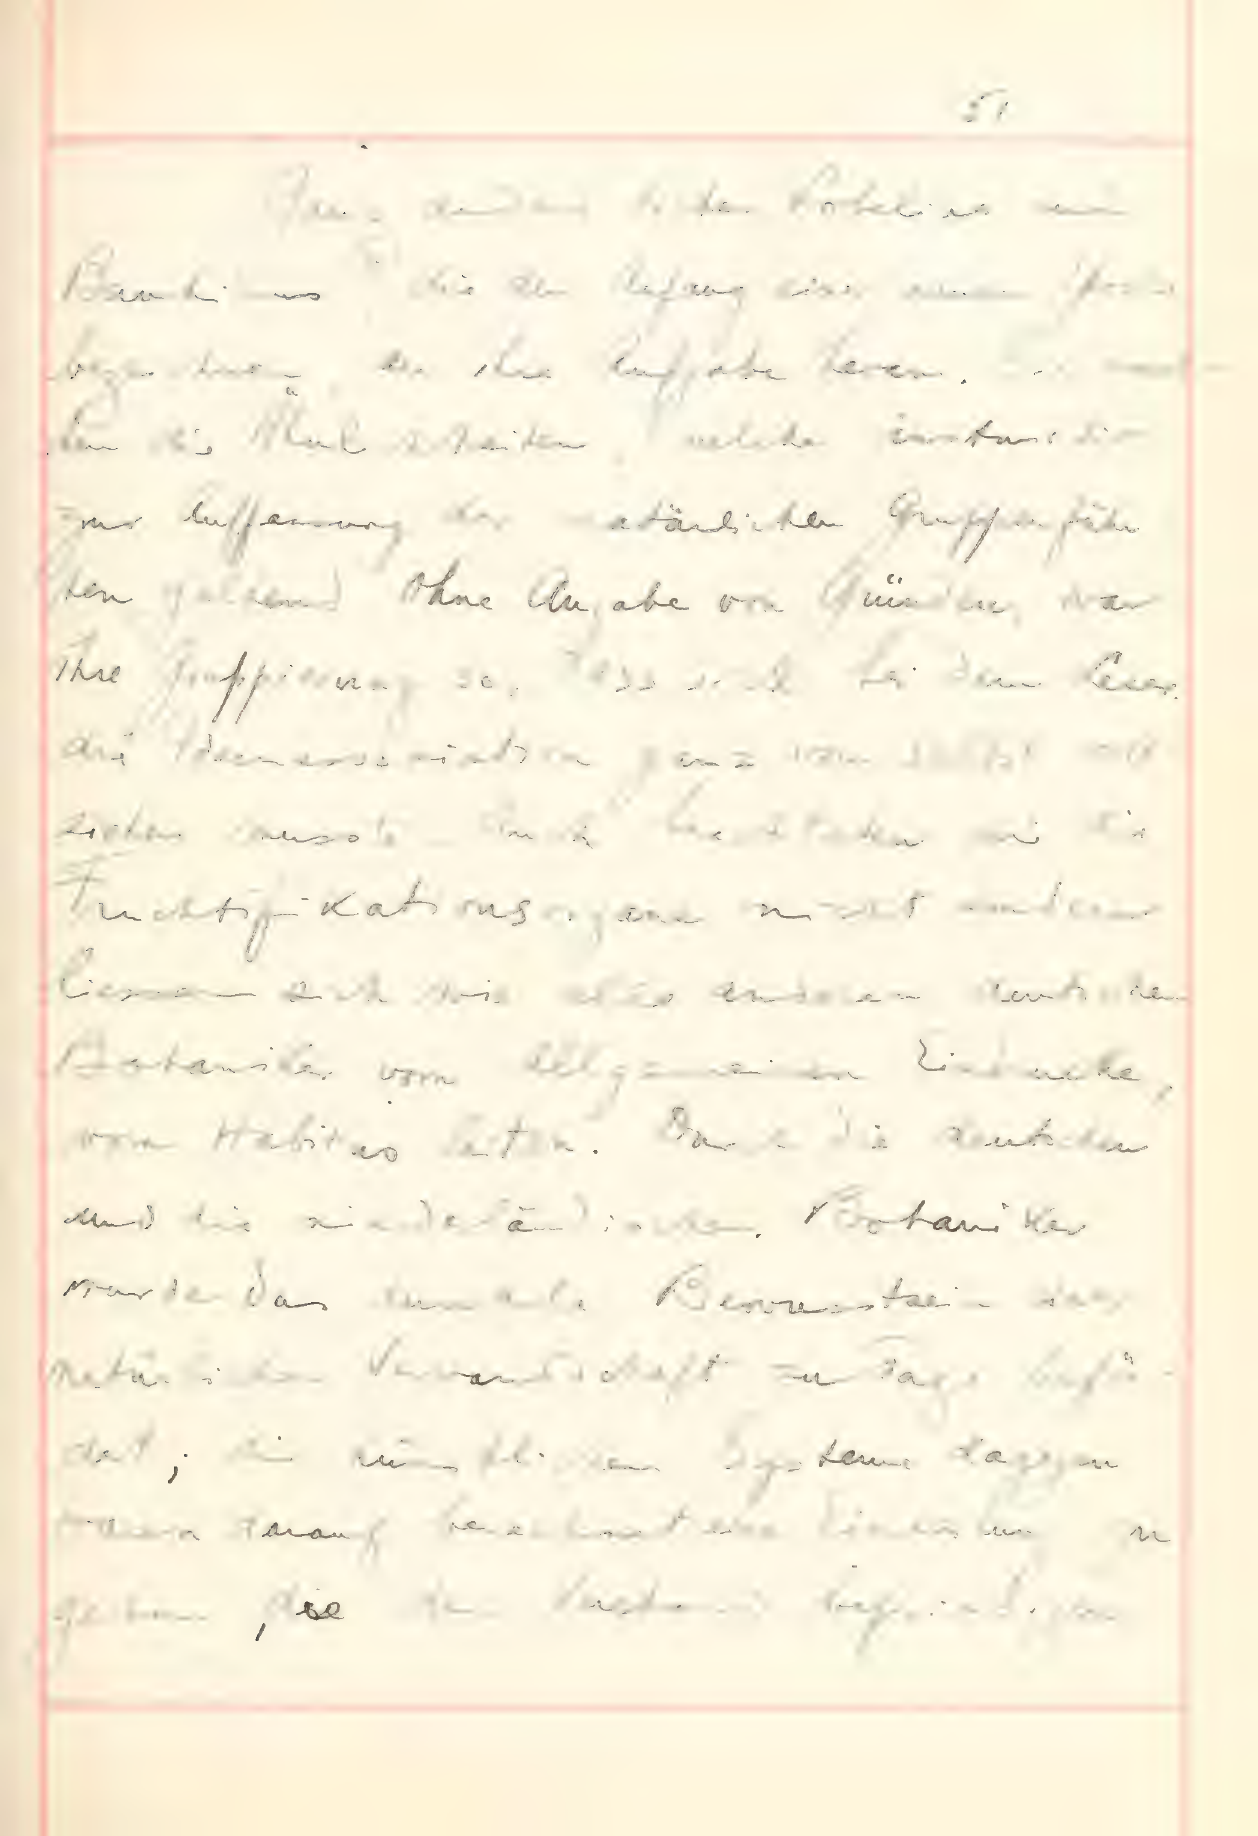 51
Ganz anders Lobelius und
Bauhinus die den Anfang einer neuen
bezeichnen, an ihre Aufgabe heran.
die Ähnlichkeiten, welche instinktiv
zur Auffassung der natürlichen Gruppen führ
ten geltend ohne Angabe von Gründen, war
ihre Gruppierung so, dass sich bei dem Leser
die Ideenassociation ganz von selbst voll
ziehen musste. Auch beachteten sie die
Fruchtifikationsorgane nicht sondern
liessen sich wie alle anderen deutschen
Botaniker vom allgemeinen Eindrucke,
vom Habitus leiten. Durch die deutschen
und die niederländischen Botaniker
wurde das dunkle Bewusstsein der
natürlichen Verwandtschaft zu Tage beför
dert; die künstlichen Systeme dagegen
waren darauf berechnet eine Einteilung zu
geben, die den Verstand befriedigen